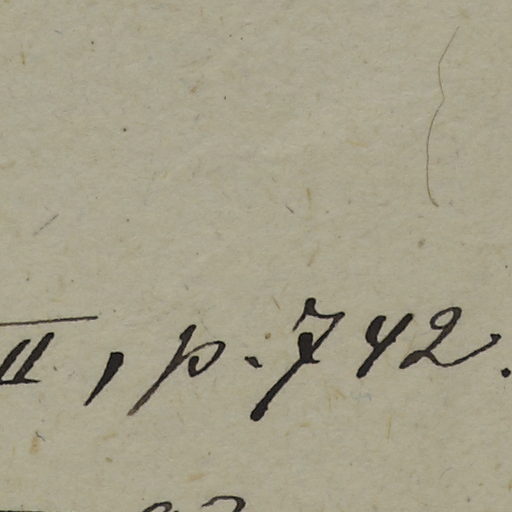 II, p. 742.